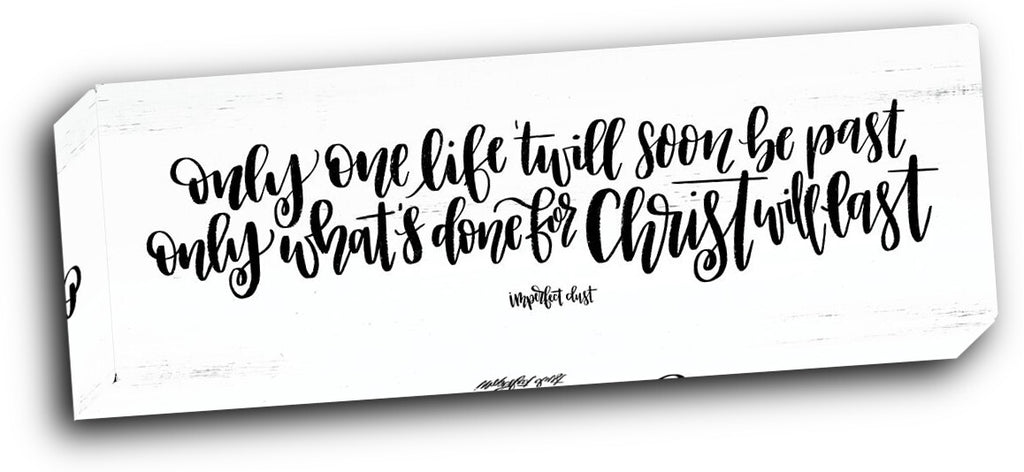 only one life 'twill soon be past
only what's done for Christ will last
imperfect dust